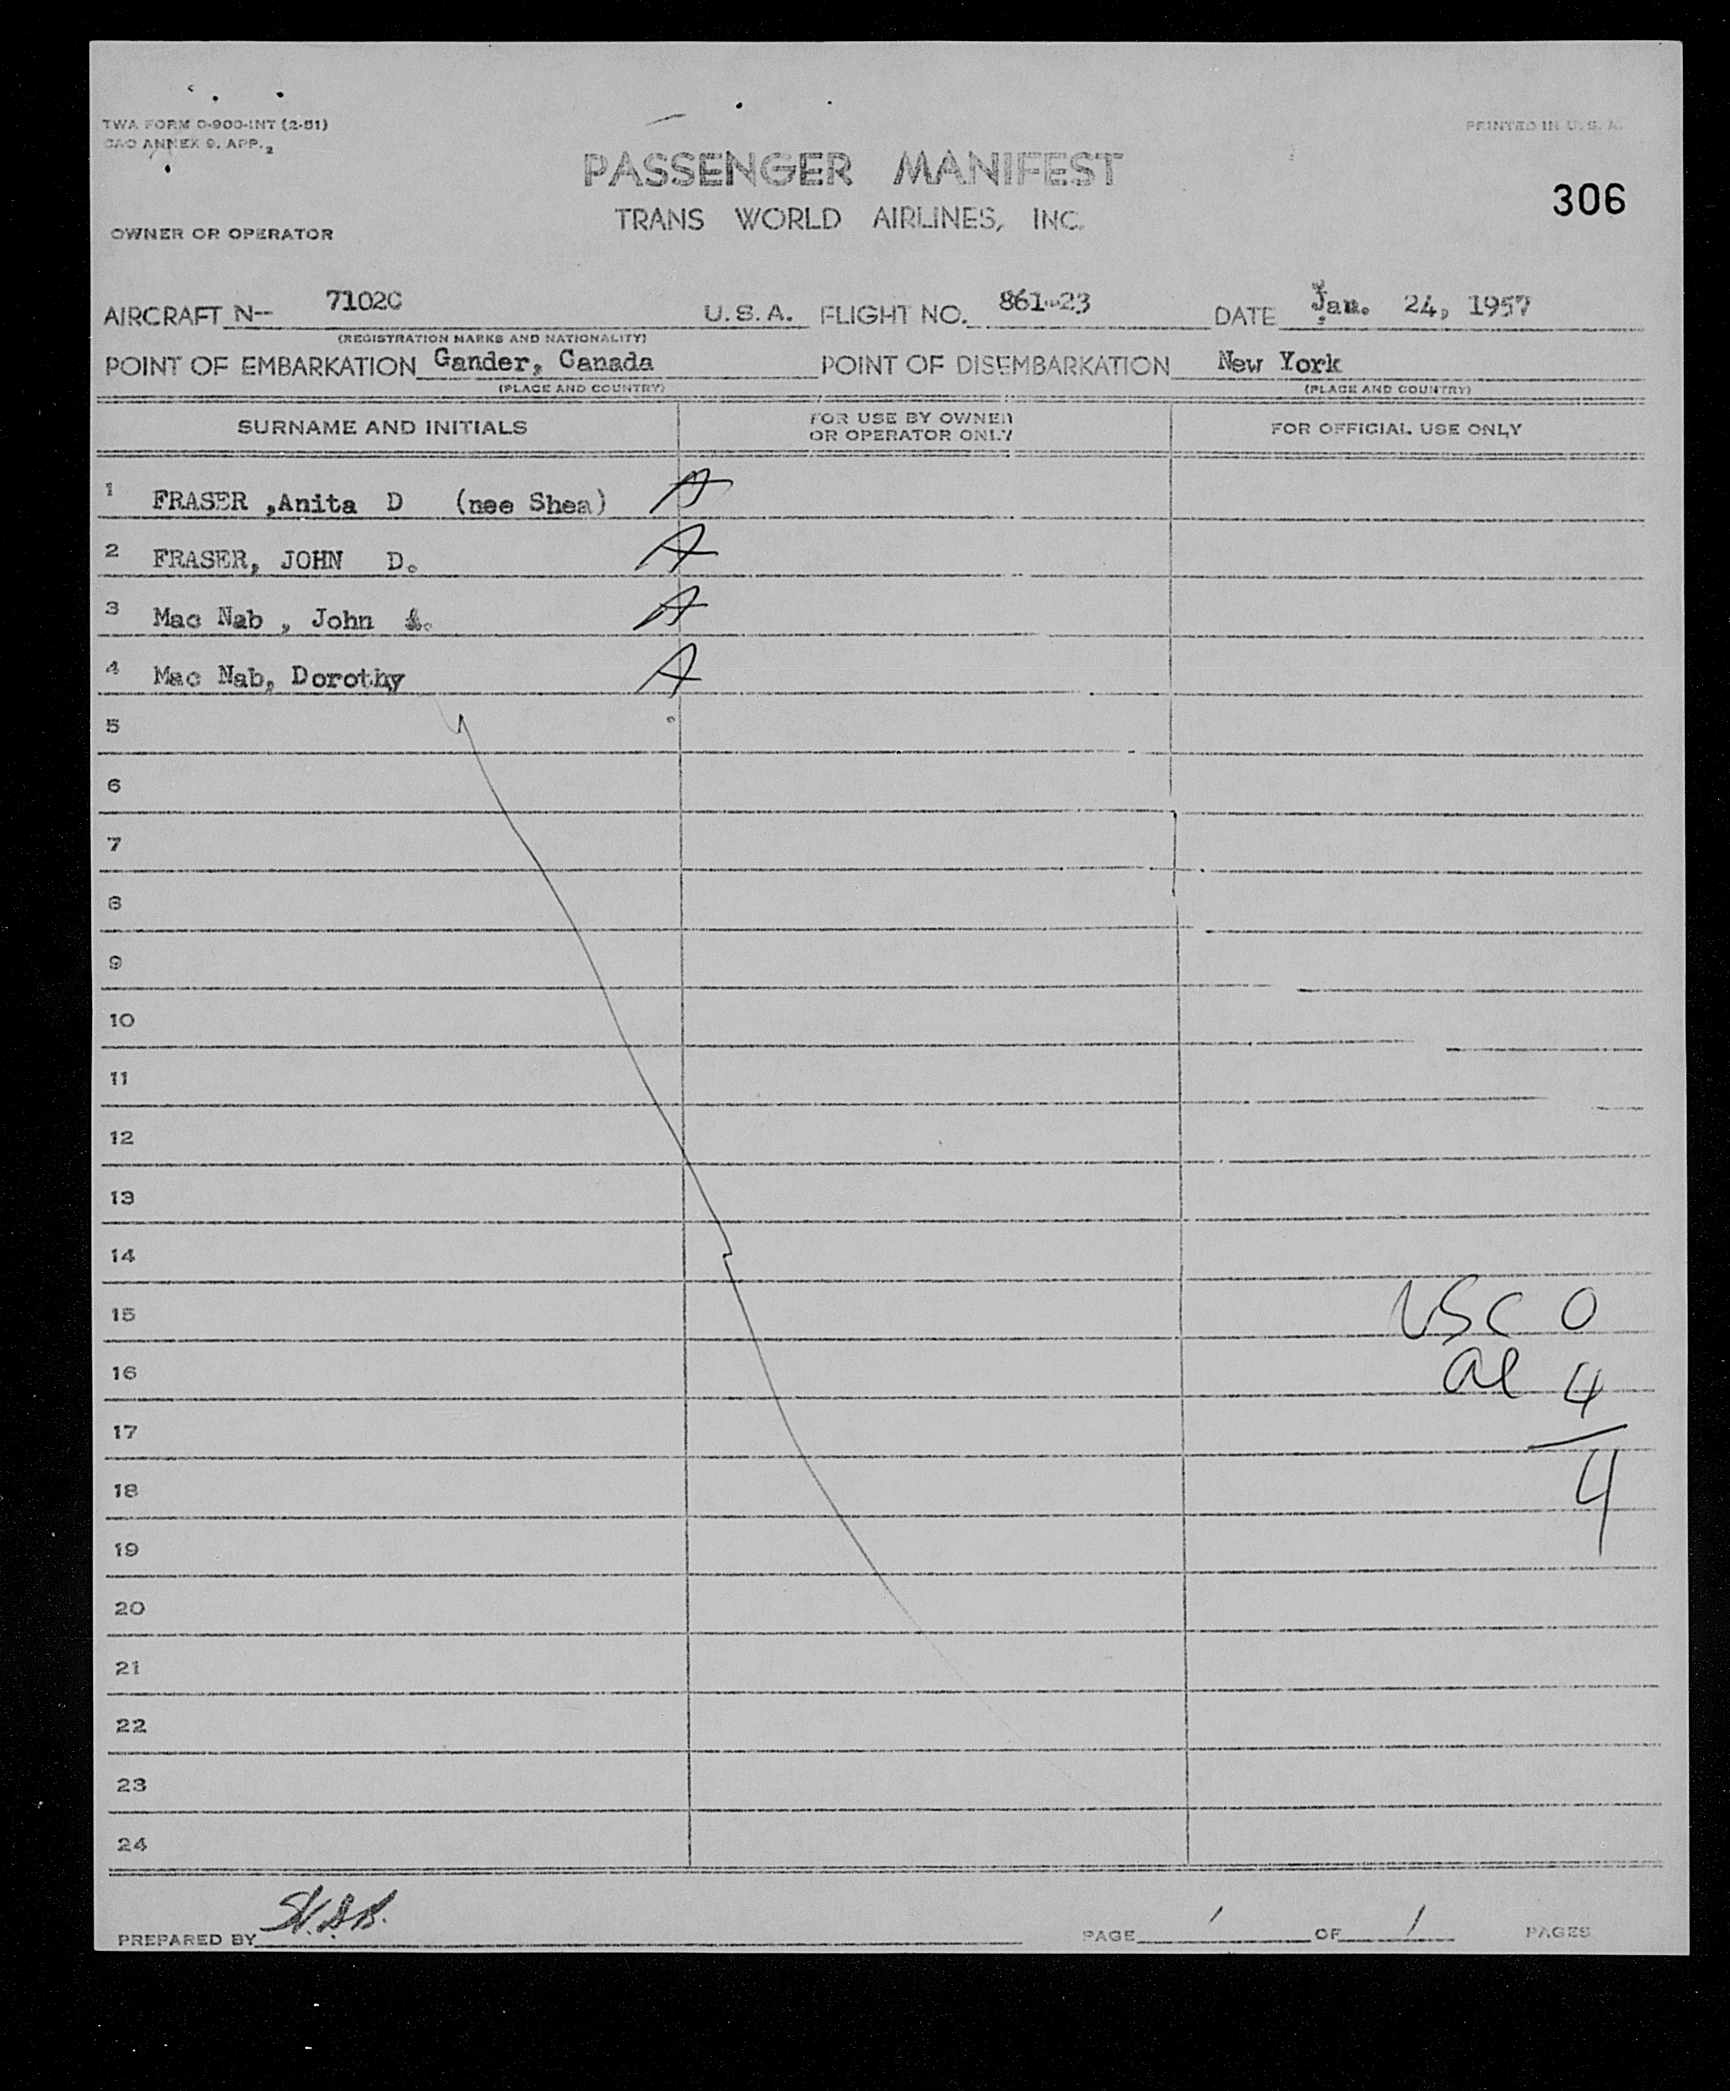 TWA FORM O-900-INT (2-51)
CAO ANNEX 9. APP. 2
PRINTED IN U. S. A.
PASSENGER MANIFEST
306
TRANS WORLD AIRLINES, INC.
OWNER OR OPERATOR
AIRCRAFT N-- 7102C U. S. A. FLIGHT NO. 861-23 DATE Jan. 24, 1957
(REGISTRATION MARKS AND NATIONALITY)
POINT OF EMBARKATION Gander, Canada POINT OF DISEMBARKATION New York
(PLACE AND COUNTRY) (PLACE AND COUNTRY)
SURNAME AND INITIALS FOR USE BY OWNER OR OPERATOR ONLY FOR OFFICIAL USE ONLY
1 FRASER ,Anita D (nee Shea) A
2 FRASER, JOHN D. A
3 Mac Nab , John A
4 Mac Nab, Dorothy A
5
6
7
8
9
10
11
12
13
14
15 USC 0
16 al 4
17
18 4
19
20
21
22
23
24
PREPARED BY PAGE 1 OF 1 PAGES